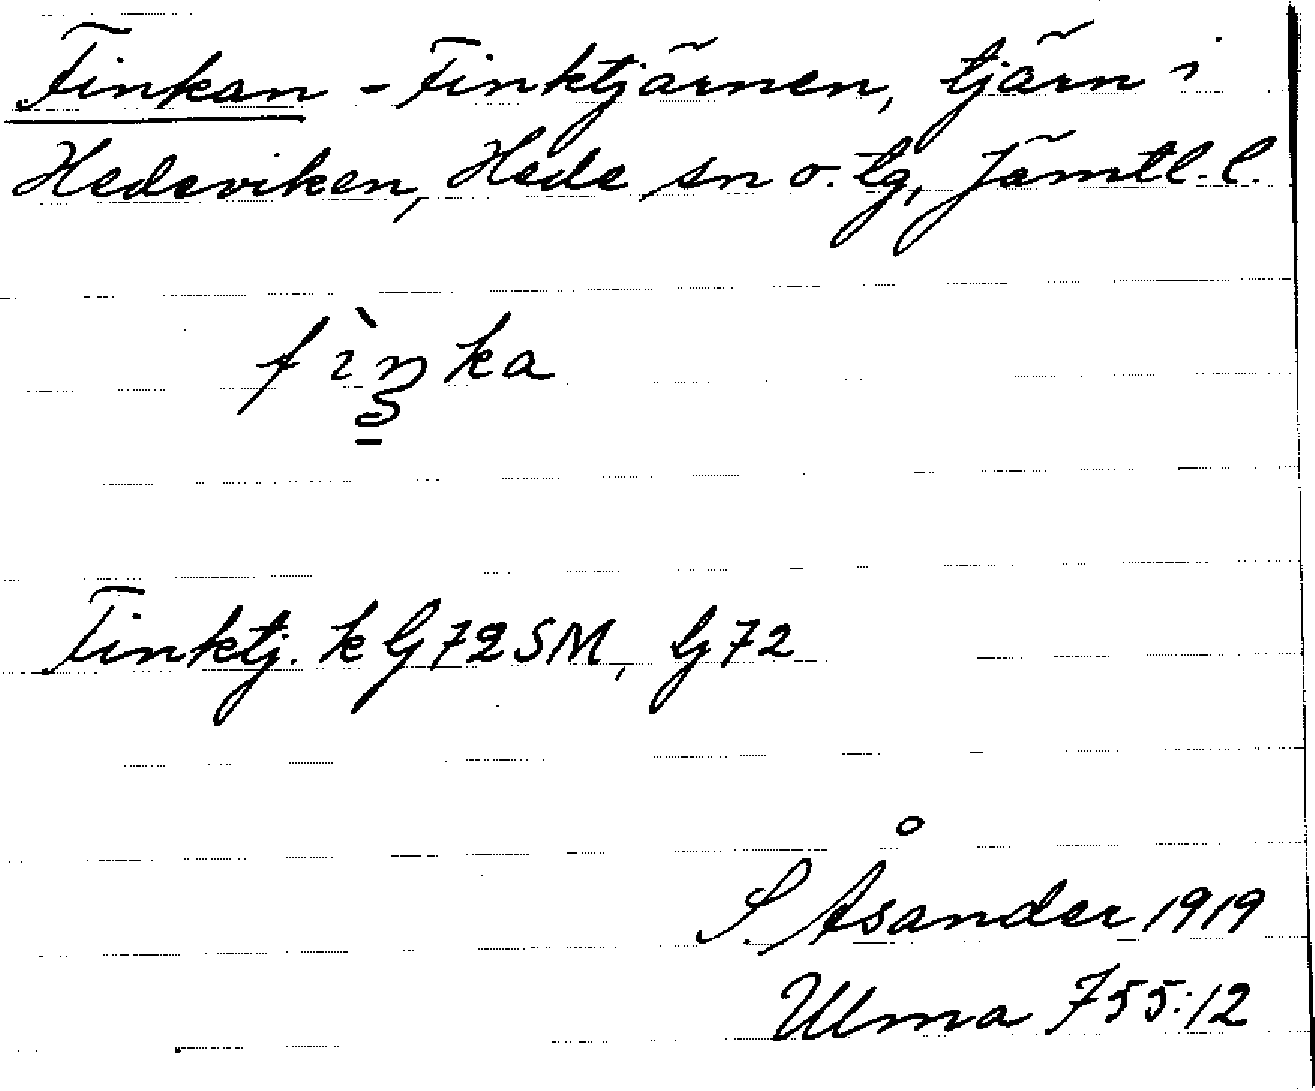 Finkan - Finktjärnen, tjärn i
Hedeviken, Hede sn o. tg, Jämtl. l.
fìŋka
Finktj. k Gf 72 SM, Gf 72
S. Åsander 1919
Ulma 755:12